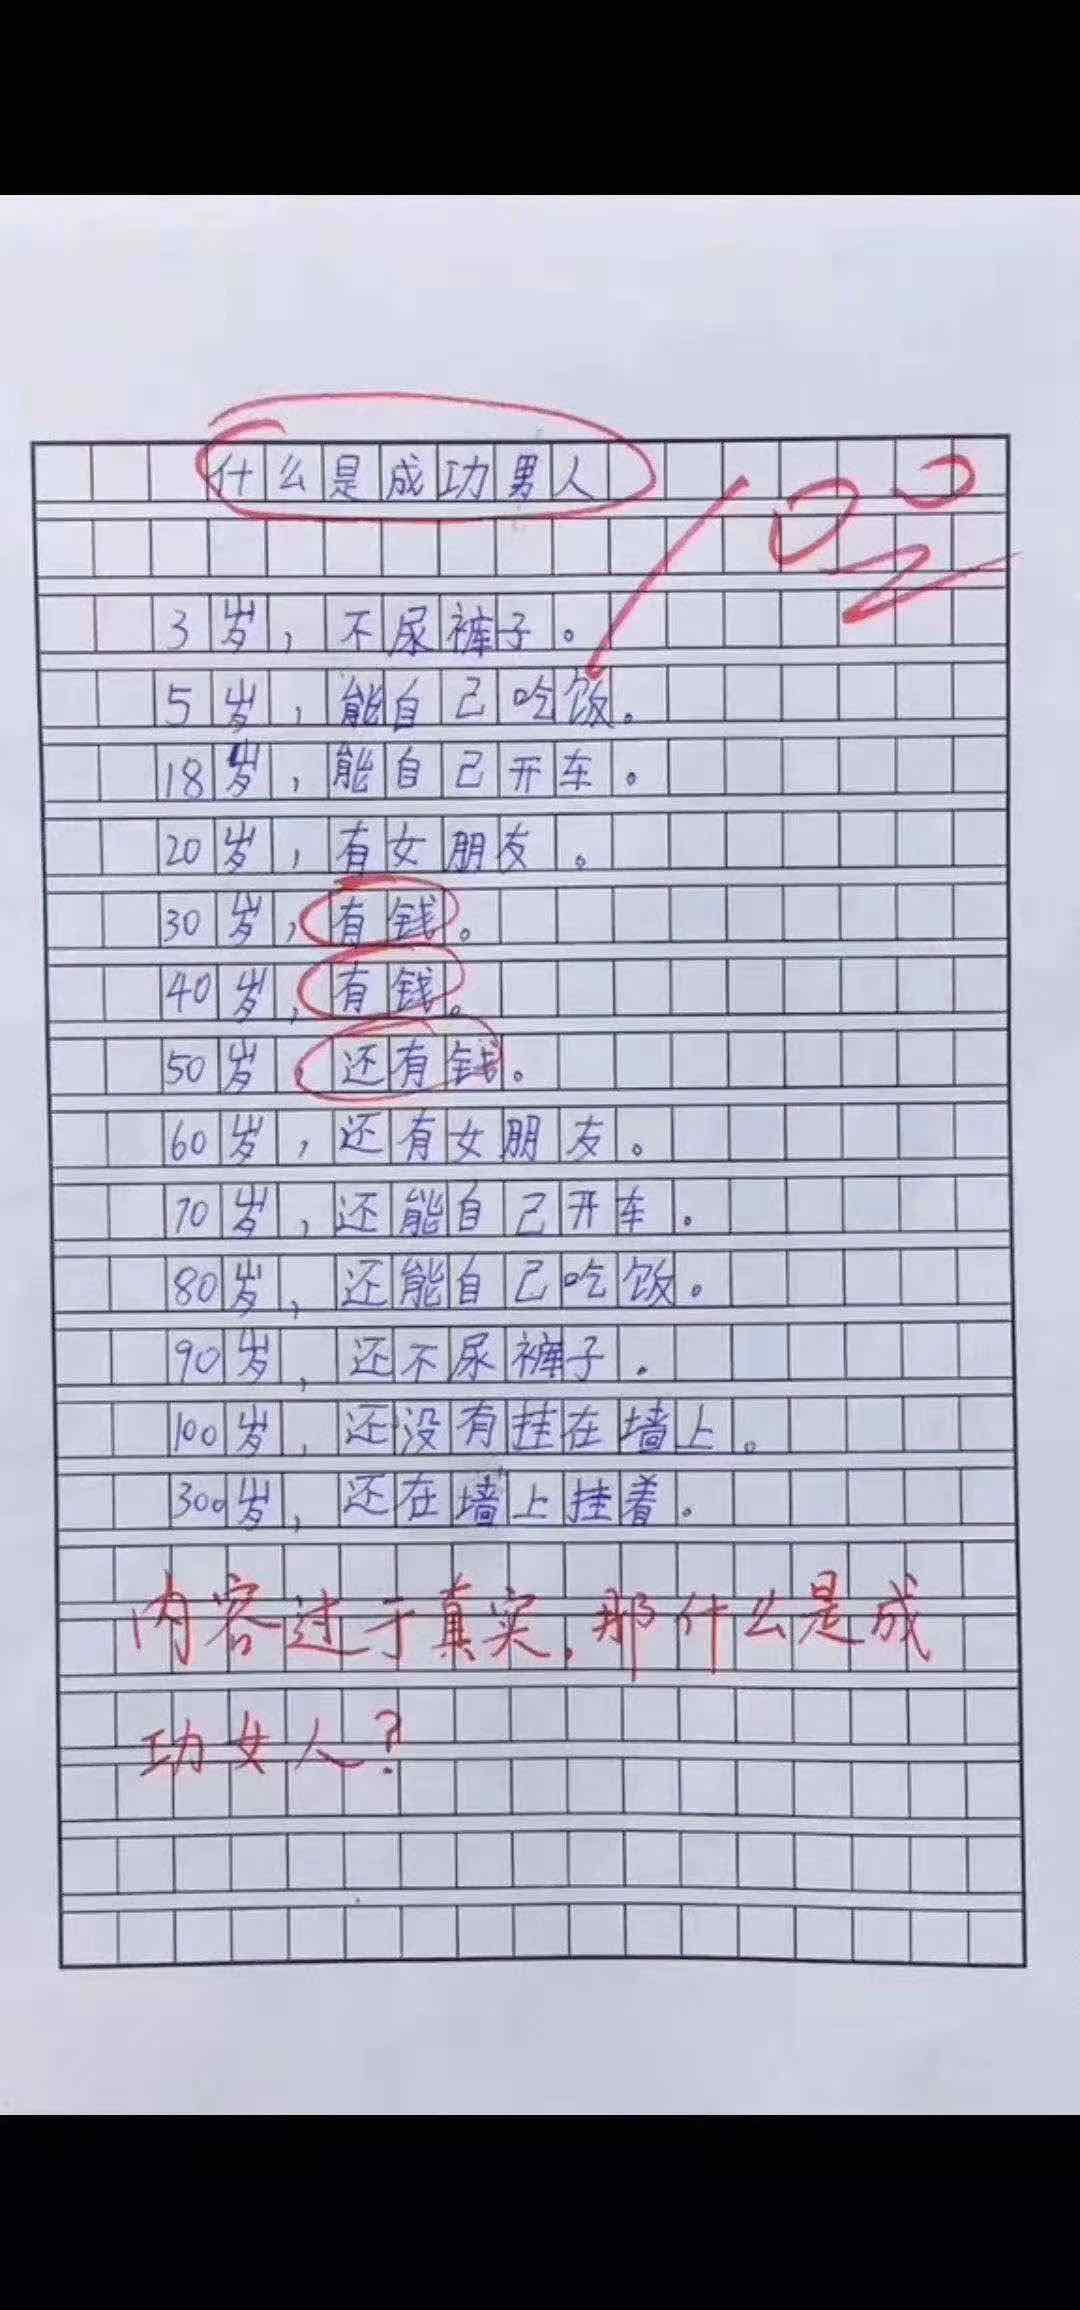 什么是成功男人
100
3岁，不尿裤子。
5岁，能自己吃饭。
18岁，能自己开车。
20岁，有女朋友。
30岁，有钱。
40岁，有钱。
50岁，还有钱。
60岁，还有女朋友。
70岁，还能自己开车。
80岁，还能自己吃饭。
90岁，还不尿裤子.
100岁，还没有挂在墙上。
300岁，还在墙上挂着.
内容过于真实，那什么是成
功女人？